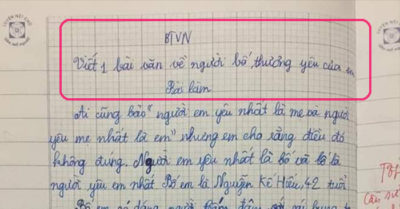 BTVN
Viết 1 bài văn về người bố thương yêu của em
Bài làm
Ai cũng bảo "người em yêu nhất là mẹ và người
yêu mẹ nhất là em" nhưng em cho rằng điều đó
không đúng. Người em yêu nhất là bố và bố là
người yêu em nhất. Bố em là Nguyễn Kế Hiếu, 42 tuổi
Bố em có dáng người